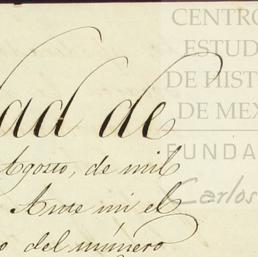 CENTRO
ESTUD
DE HIST
DE MEX
FUNDA
Carlos
dad de
Agosto, de mil
Ante mi el
o del número